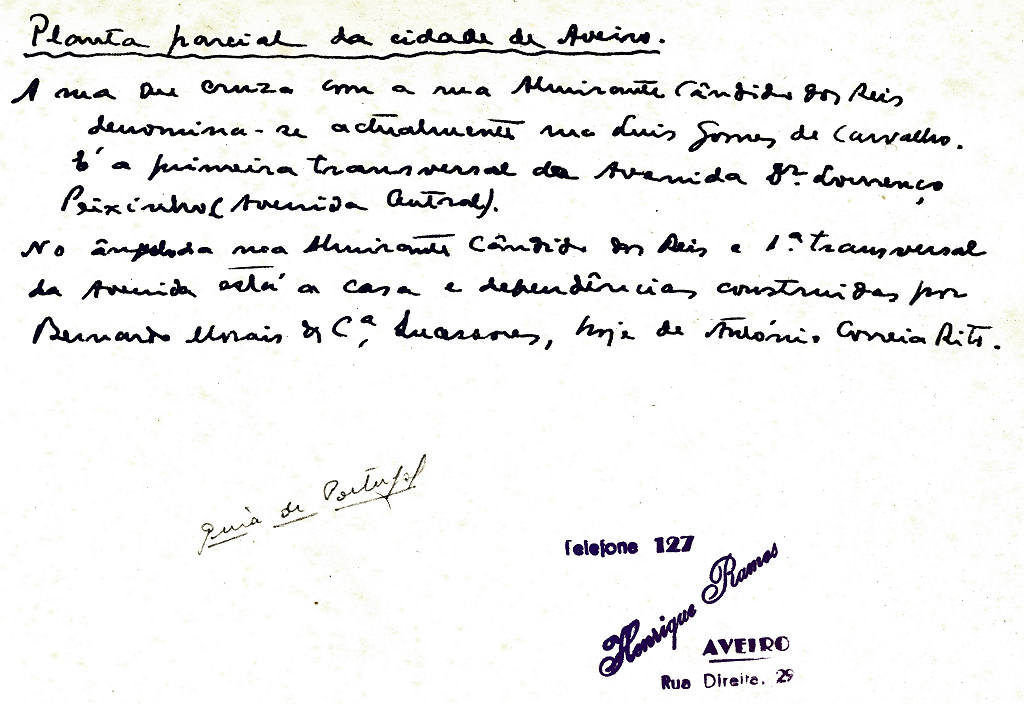 Planta parcial da cidade de Aveiro.
A rua que cruza com a rua Almirante Cândido dos Reis
denomina-se actualmente rua Luis Gomes de Carvalho.
É a primeira transversal da Avenida Dr. Lourenço
Peixinho (Avenida Central).
No ângulo da rua Almirante Cândido dos Reis e 1.ª transversal
da Avenida está a casa e dependências construidas por
Bernardo Morais & Cª, Sucessores, hoje de António Correia Rito.
Guia de Portugal
Telefone 127
Henrique Ramos
AVEIRO
Rua Direita, 29